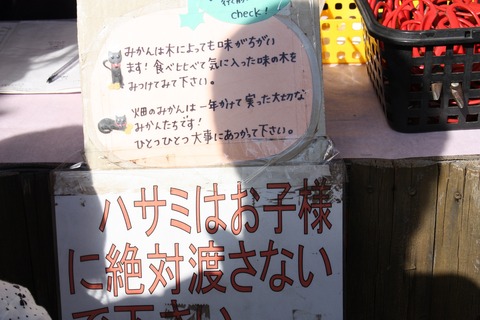 check!
みかんは木によっても味がちがい
ます！食べ比べて気に入った味の木を
みつけてみて下さい。
畑のみかんは一年かけて実った大切な
みかんたちです！
ひとつひとつ大事にあつかって下さい。
ハサミはお子様
に絶対渡さない
で下さい